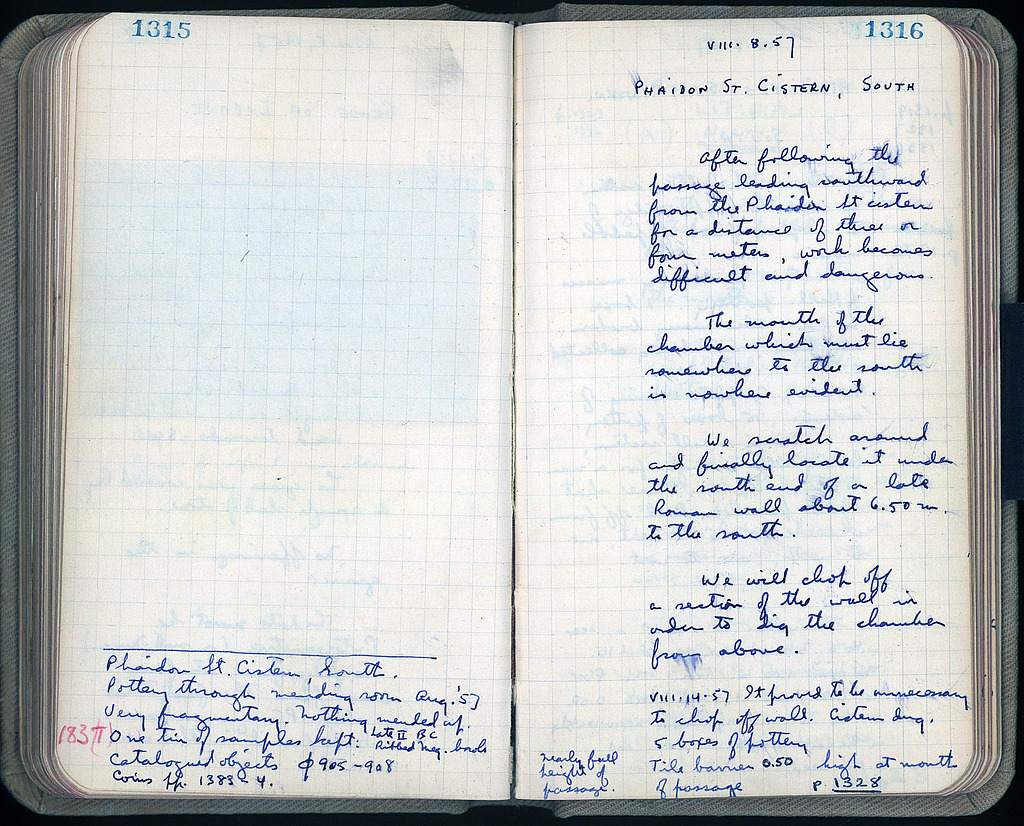 1315
Phaidon St. Cistern, South.
Pottery through mending room Aug. '57
Very fragmentary. Nothing mended up.
One tin of samples kept: Late II BC
Ribbed Meg. bowls
Catalogued objects φ 905-908
Coins pp. 1383-4.
1316
VIII. 8. 57
PHAIDON ST. CISTERN, SOUTH
After following the
passage leading southward
from the Phaidon St cistern
for a distance of three or
four meters, work becomes
difficult and dangerous.
The mouth of the
chamber which must lie
somewhere to the south
is nowhere evident.
We scratch around
and finally locate it under
the south end of a late
Roman wall about 6.50 m.
to the south.
We will chop off
a section of the wall in
order to dig the chamber
from above.
VIII.14.57 It proved to be unnecessary
to chop off wall. Cistern dug.
5 boxes of pottery
Tile barrier 0.50 high at mouth
of passage p. 1328
nearly full
height of
passage.